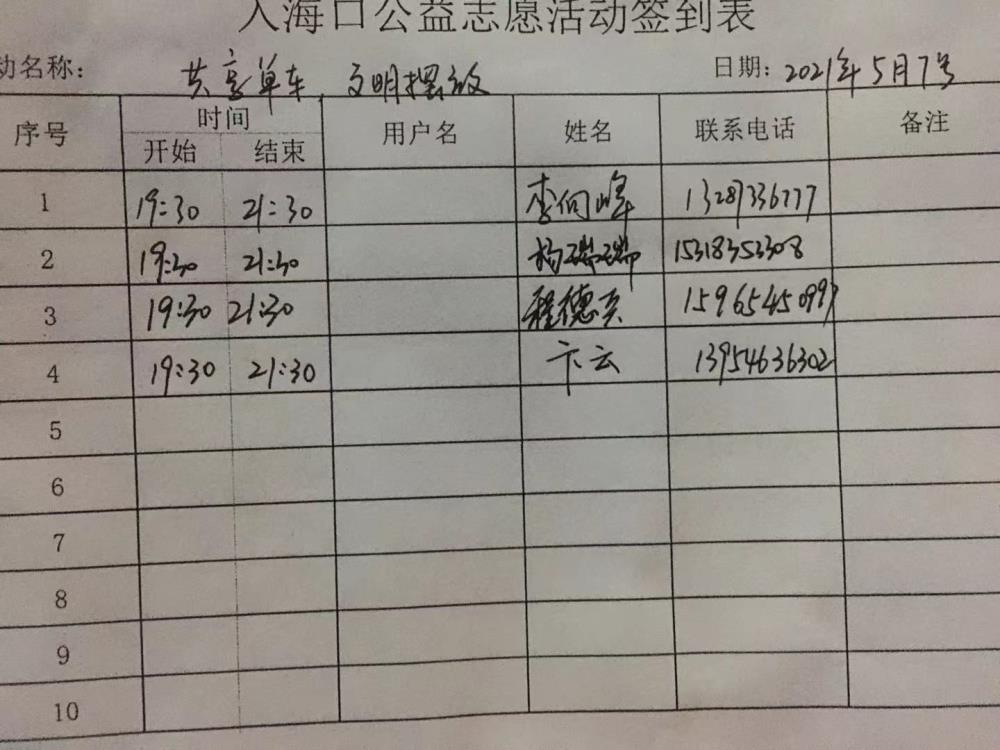 入海口公益志愿活动签到表
动名称： 共享单车，文明摆放 日期：2021年5月7号
序号 时间 用户名 姓名 联系电话 备注
开始 结束
1 19:30 21:30 李向峰 13287336777
2 19:30 21:30 杨瑞瑞 15318353308
3 19:30 21:30 程德亮 15965450997
4 19:30 21:30 卞云 13954636302
5
6
7
8
9
10